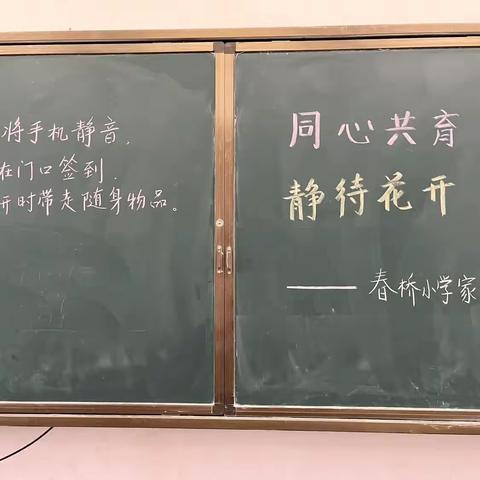 将手机静音，
在门口签到．
开时带走随身物品。
同心共育
静待花开
——春桥小学家